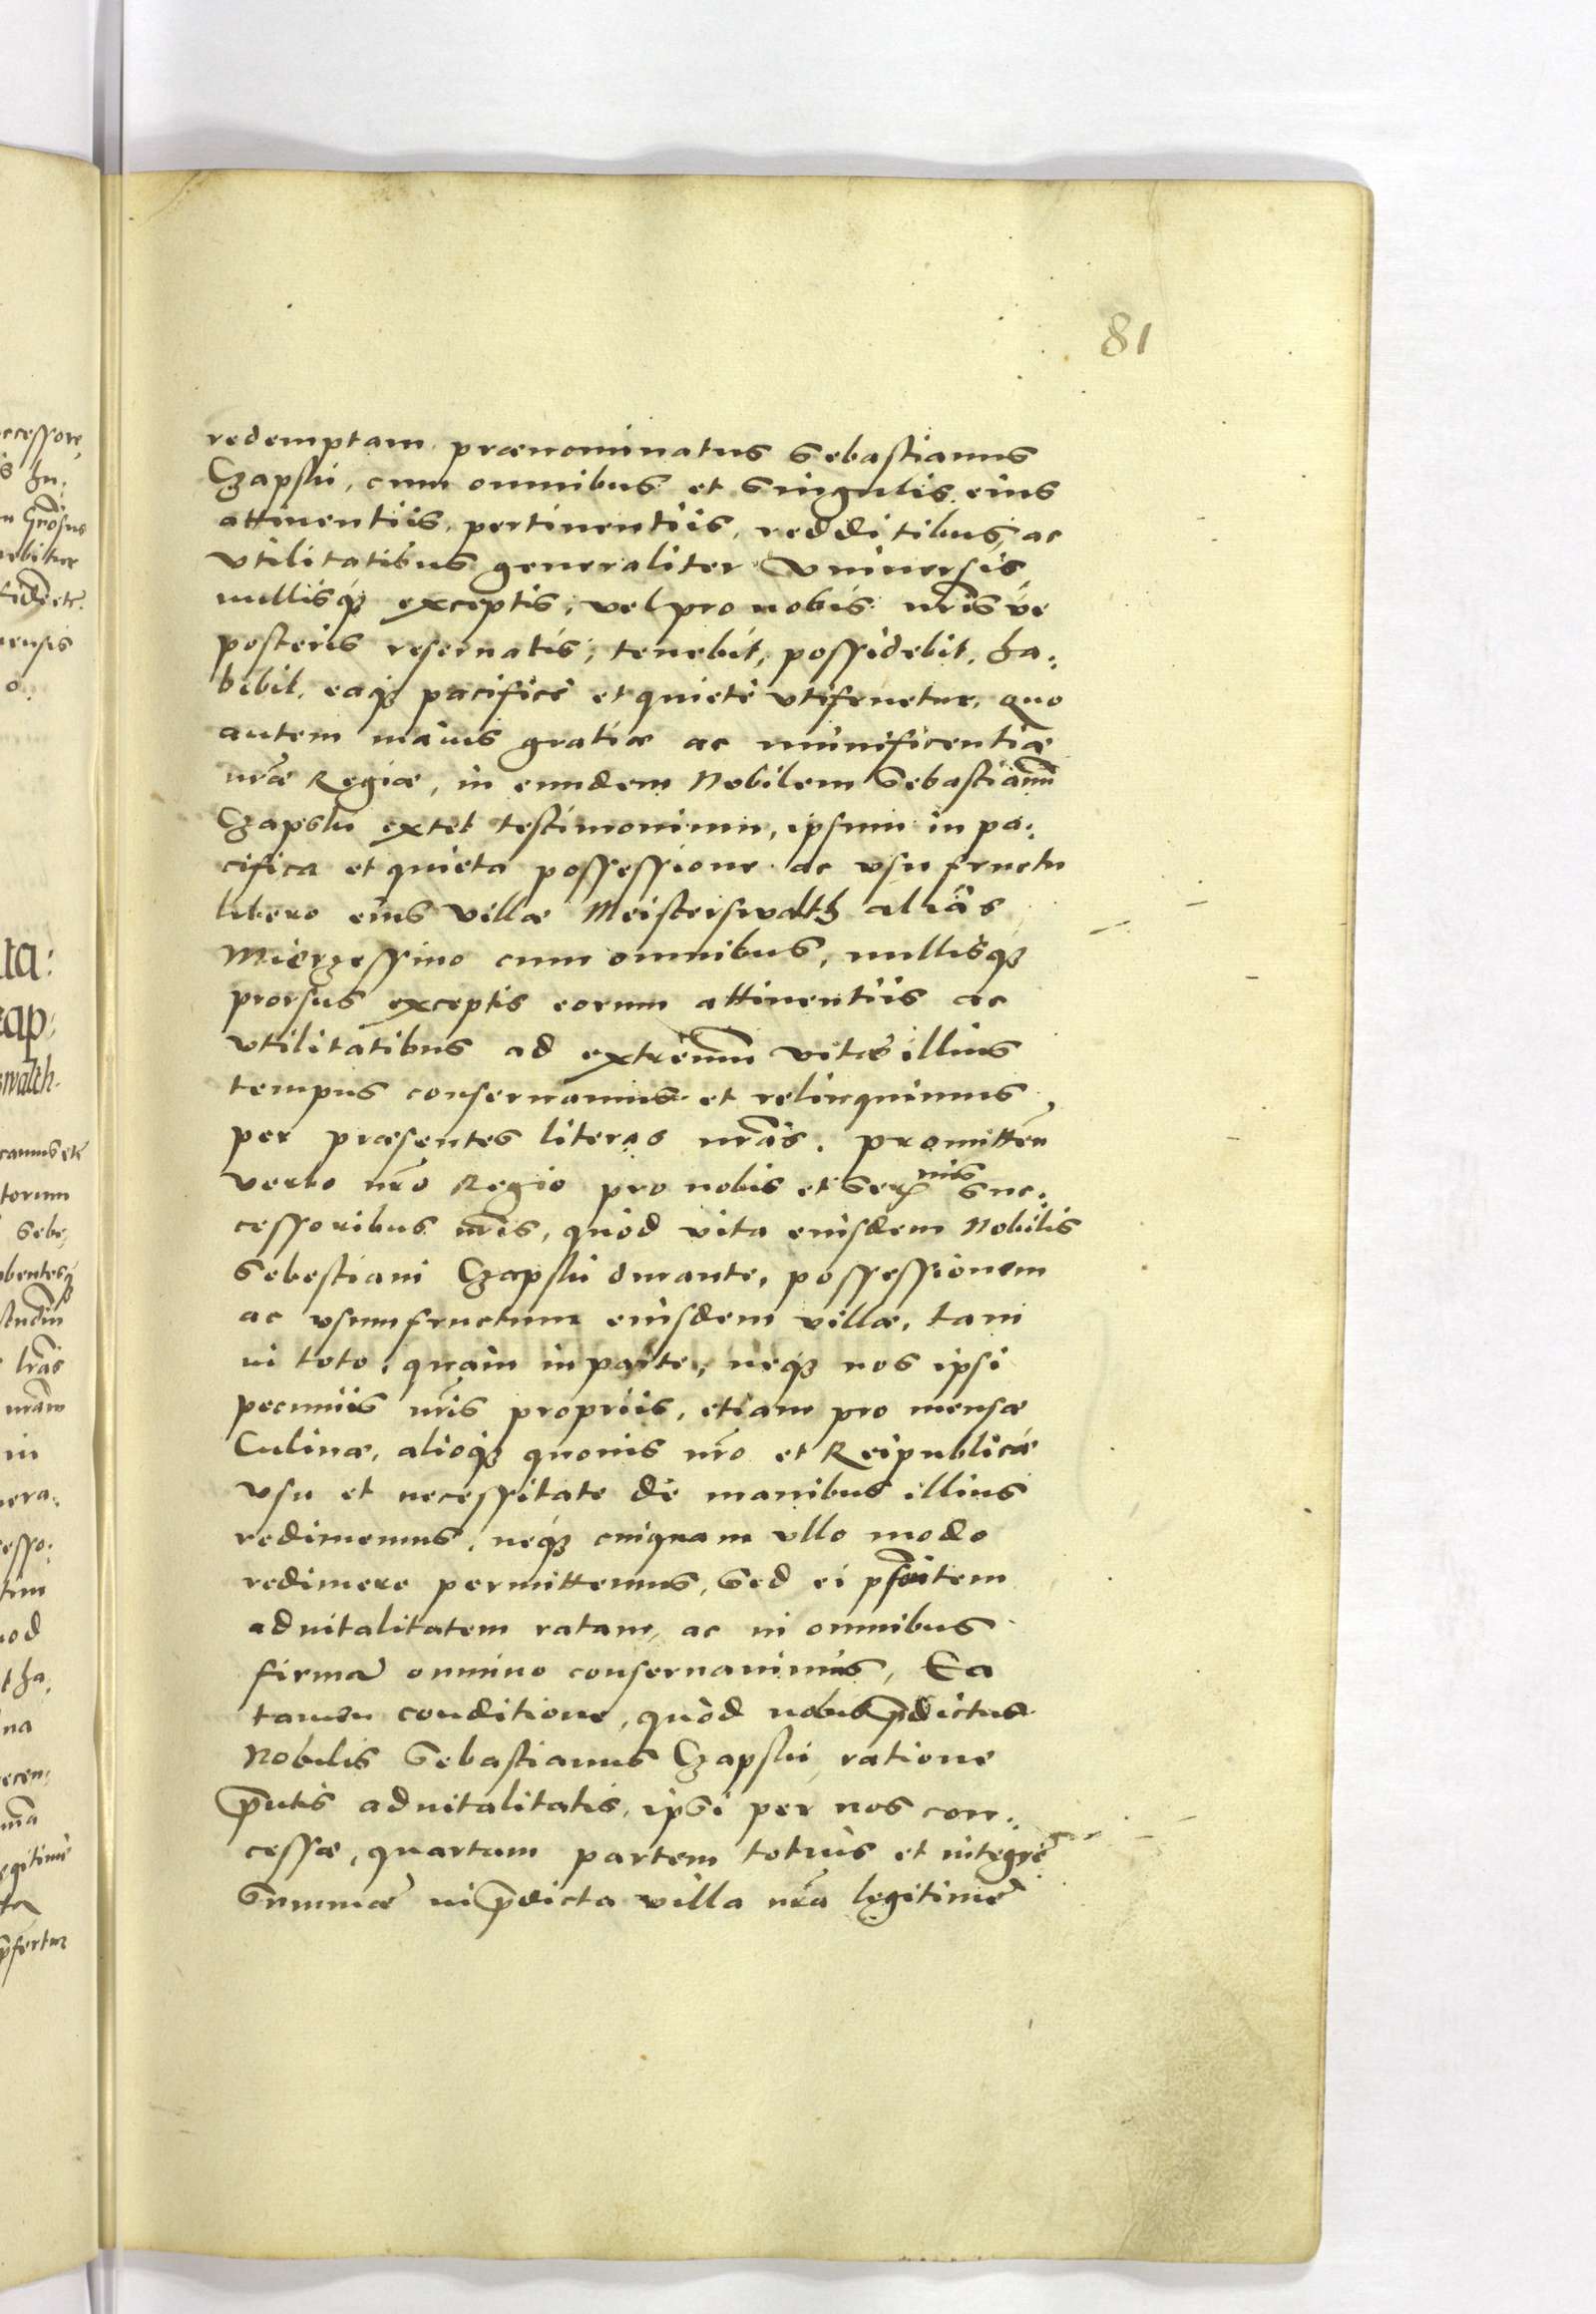 81
redemptam prænominatus Sebastianus
Czapski, cum omnibus et Singulis eius
attinentiis, pertinentiis, redditibus, ac
vtilitatibus generaliter Vniuersis,
nullisq₃ exceptis, vel pro nobis nr̃isúe
posteris reseruatis, tenebit, possidebit, ha:
bebit, eaq₃ pacificè et quietè vtifruetur, quo
autem maius gratiæ ac munificentiæ
nr̃æ Regiæ, in eundem Nobilem Sebastianũ
Czapski extet testimonium, ipsum in pa:
cifica et quieta possessione ac vsufructu
libero eius villæ Meisterswalth aliàs
Mierzessino cum omnibus, nullisq₃
prorsus exceptis eorum attinentiis ac
vtilitatibus ad extremũ vitæ illius
tempus conseruamus et relinquimus
per præsentes literas nr̃as. promitteñ
verbo nr̃o Regio pro nobis et Serᵐⁱˢ Suc:
cessoribus nr̃is, quòd vita eiusdem Nobilis
Sebestiani Czapski durante, possessionem
ac vsumfructum eiusdem villæ, tam
in toto, quàm in parte, neq₃ nos ipsi
pecuniis nr̃is propriis, etiam pro mensæ
Culinæ, alioq₃ quouis nr̃o et Reipublicæ
vsu et necessitate de manibus illius
redimemus, neq₃ cuiquam vllo modo
redimere permittemus, Sed ei
aduitalitatem ratam, ac in omnibus
firmã omnino conseruauimus, Ea
tamen conditione, quòd nobis p̃dictus
Nobilis Sebastianus Czapski, ratione
p̃ntis aduitalitatis, ipsi per nos con:
cessæ, quartam partem totius et integrę
Summæ in p̃dicta villa nr̃a legitimè